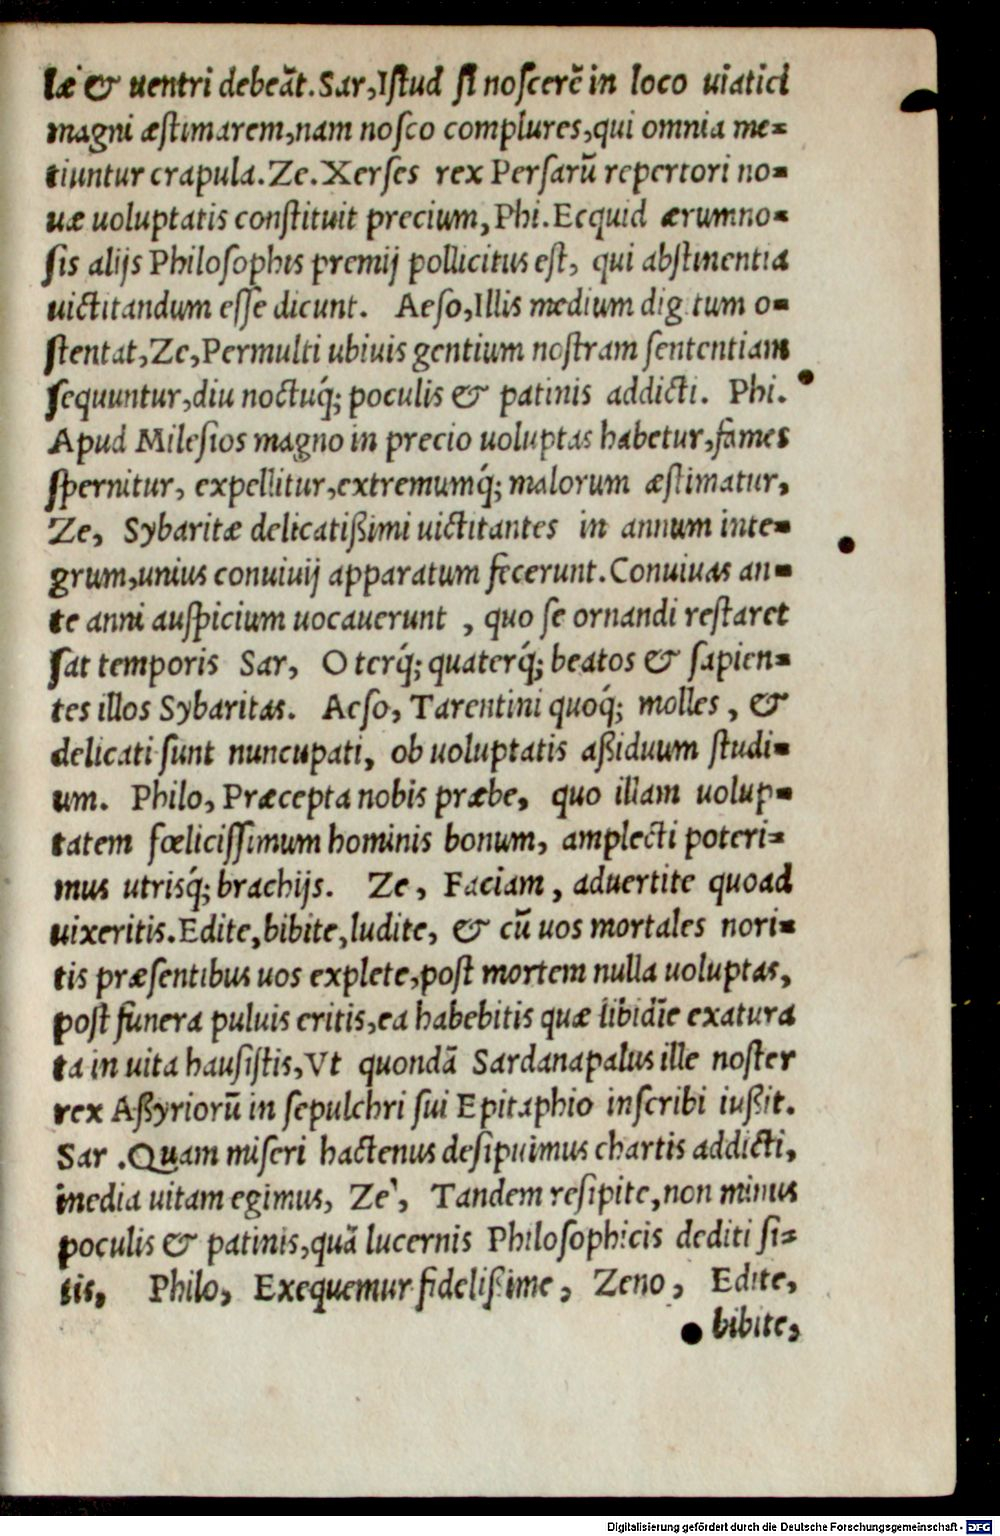 læ & uentri debeāt. Sar, Istud si noscerē in loco uiatici
magni æstimarem, nam nosco complures, qui omnia me=
tiuntur crapula. Ze. Xerses rex Persarū repertori no=
uæ uoluptatis constituit precium, Phi. Ecquid ærumno=
sis alijs Philosophis premij pollicitus est, qui abstinentia
uictitandum esse dicunt. Aeso, Illis medium dig tum o=
stentat, Ze, Permulti ubiuis gentium nostram sententiam
sequuntur, diu noctuq́; poculis & patinis addicti. Phi.
Apud Milesios magno in precio uoluptas habetur, fames
spernitur, expellitur, extremumq́; malorum æstimatur,
Ze, Sybaritæ delicatißimi uictitantes in annum inte=
grum, unius conuiuij apparatum fecerunt. Conuiuas an=
te anni auspicium uocauerunt , quo se ornandi restaret
sat temporis Sar, O terq́; quaterq́; beatos & sapien=
tes illos Sybaritas. Aeso, Tarentini quoq́; molles , &
delicati sunt nuncupati, ob uoluptatis aßiduum studi=
um. Philo, Præcepta nobis præbe, quo illam uolup=
tatem fœlicissimum hominis bonum, amplecti poteri=
mus utrisq́; brachijs. Ze , Faciam , aduertite quoad
uixeritis. Edite, bibite, ludite, & cū uos mortales nori=
tis præsentibus uos explete, post mortem nulla uoluptas,
post funera puluis eritis, ea habebitis quæ libidīe exatura
ta in uita hausistis, Vt quondā Sardanapalus ille noster
rex Aßyriorū in sepulchri sui Epitaphio inscribi iußit.
Sar .Quam miseri hactenus desipuimus chartis addicti,
inedia uitam egimus, Ze`, Tandem resipite, non minus
poculis & patinis, quā lucernis Philosophicis dediti si=
tis, Philo, Exequemur fidelißime , Zeno , Edite,
bibite,
Digitalisierung gefördert durch die Deutsche Forschungsgemeinschaft - DFG